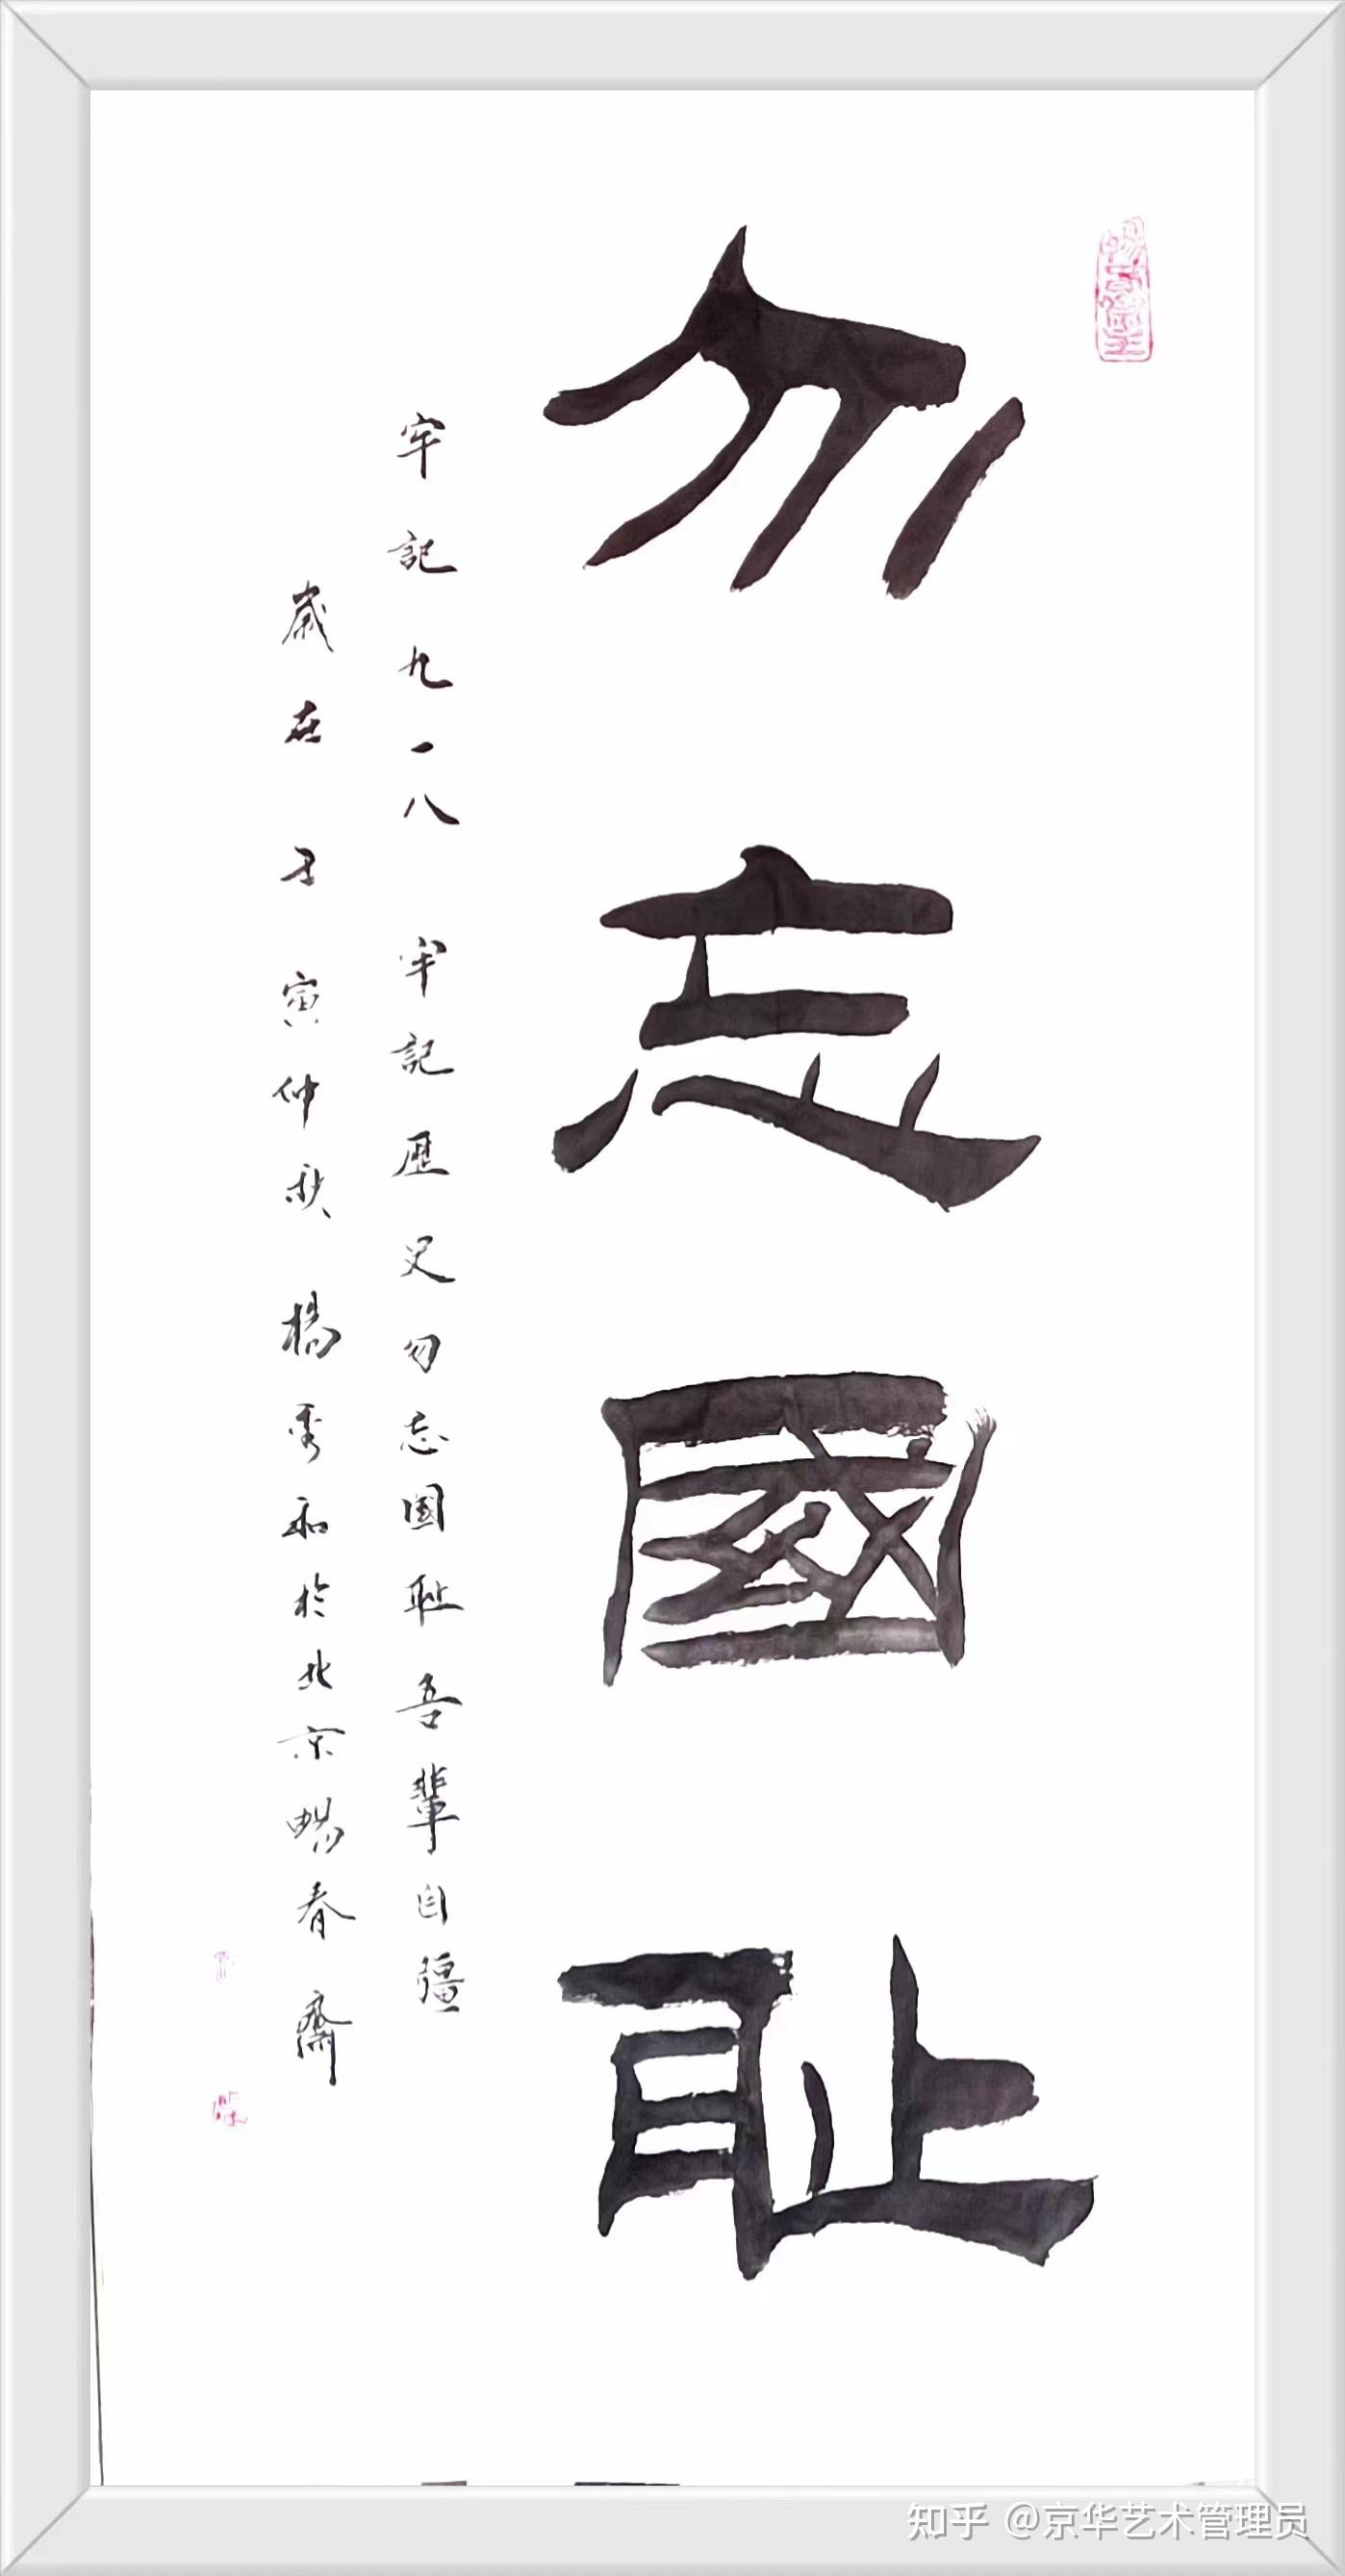 勿忘國耻
牢記九一八牢記歷史勿忘国耻吾輩自彊
歲在壬寅仲秋楊秀和於北京暢春齋
知乎 @京华艺术管理员